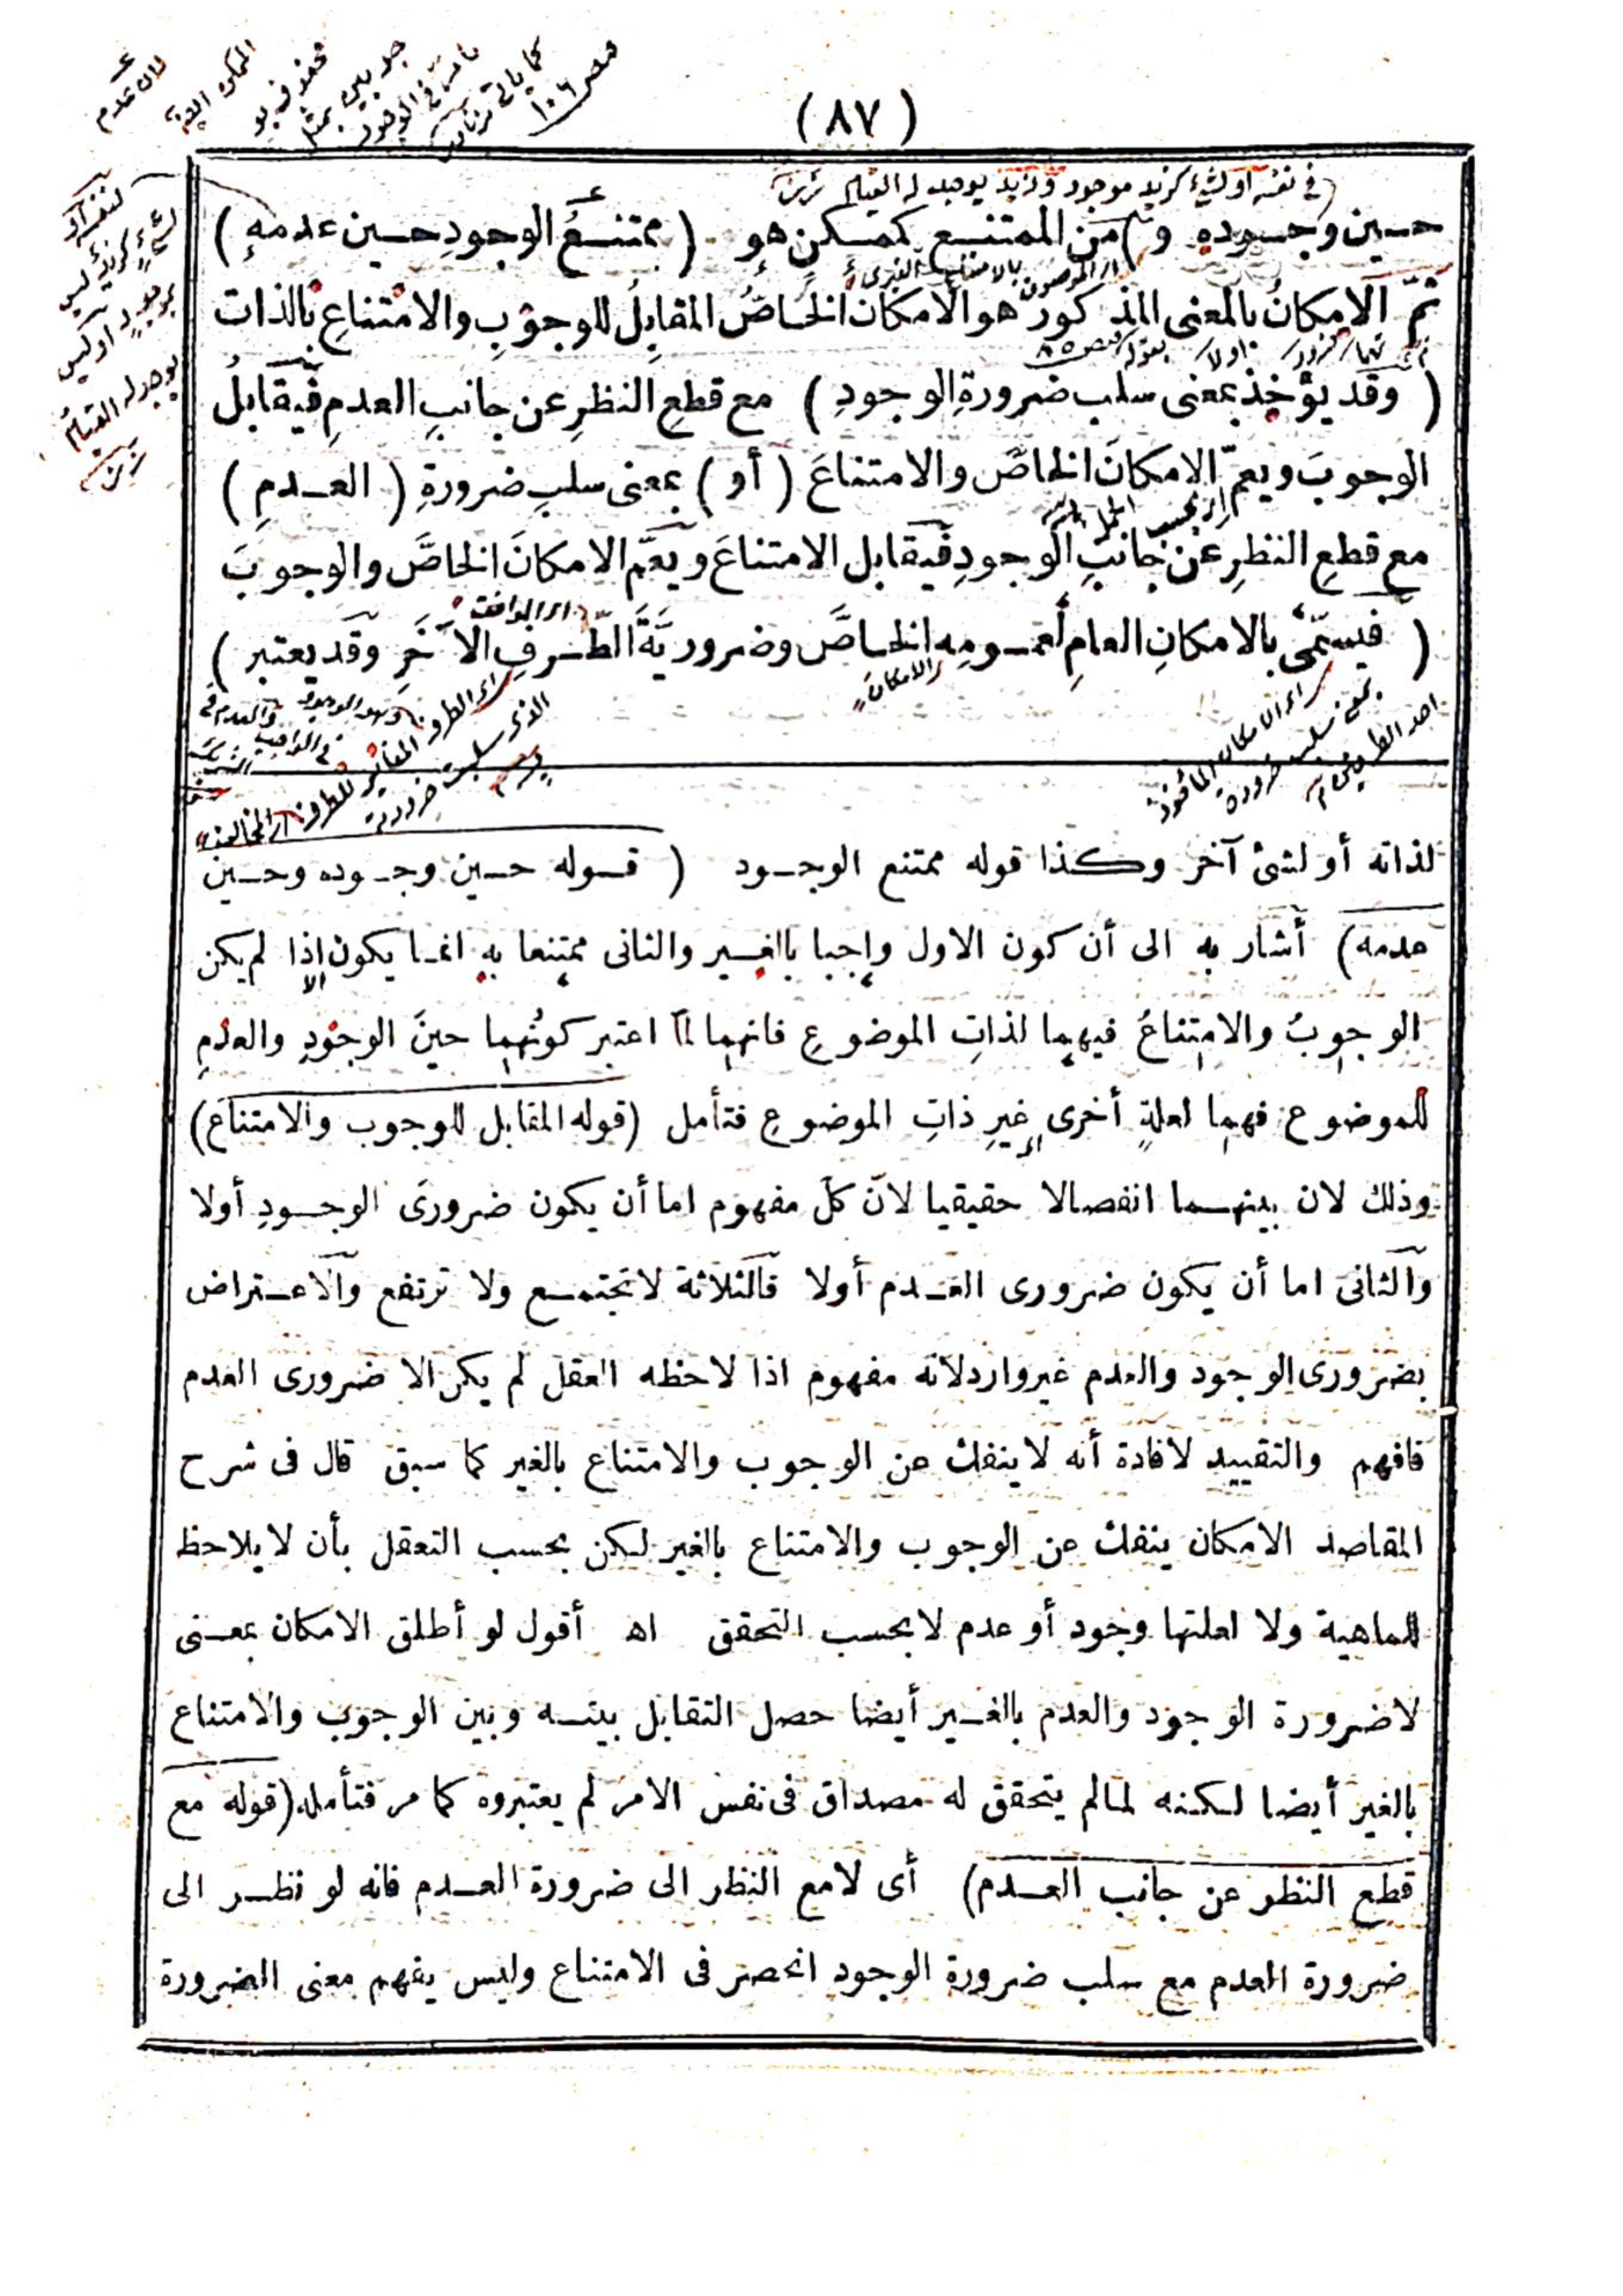 (٨٧)
(في نفسه أو لشيء كزيد موجود وزيد يوجد له القيام
حين وجوده و) من الممتنع كممكن هو (ممتنعُ الوجودِ حين عدمهِ)
ثمّ الامكانُ بالمعنى المذكور هو الامكان الخاصُّ المقابلُ للوجوبِ والامتناعِ بالذات
(وقد يؤخذ بمعنى سلب ضرورةِ الوجودِ) مع قطعِ النظرِ عن جانبِ العدمِ فيقابلُ
الوجوبَ ويعمّ الامكانَ الخاصَّ والامتناعَ (أو) بمعنى سلبِ ضرورةِ (العدمِ)
مع قطعِ النظرِ عن جانبِ الوجودِ فيقابل الامتناعَ ويعمّ الامكانَ الخاصَّ والوجوبَ
(فيسمّى بالامكانِ العامِ لعمومِه الخاصَّ وضروريّةَ الطّرفِ الآخَرِ وقد يعتبر)
الامكان
لذاته أو لشئ آخر وكذا قوله ممتنع الوجود (قوله حين وجوده وحين
عدمه) أشار به الى أن كون الاول واجبا بالغير والثانى ممتنعا به انما يكون اذا لم يكن
الوجوبُ والامتناعُ فيهما لذاتِ الموضوعِ فانهما لمّا اعتبر كونُهما حينَ الوجودِ والعدمِ
للموضوع فهما لعلةٍ أخرى غيرِ ذاتِ الموضوعِ فتأمل (قوله المقابل للوجوب والامتناع)
وذلك لان بينهما انفصالا حقيقيا لانّ كلّ مفهوم اما أن يكون ضرورىَ الوجودِ أولا
والثانى اما أن يكون ضرورى العدم أولا فالثلاثة لا تجتمع ولا ترتفع والاعتراض
بضرورى الوجود والعدم غير وارد لانه مفهوم اذا لاحظه العقل لم يكن الا ضرورى العدم
فافهم والتقييد لافادة أنه لا ينفك عن الوجوب والامتناع بالغير كما سبق قال فى شرح
المقاصد الامكان ينفك عن الوجوب والامتناع بالغير لكن بحسب التعقل بأن لا يلاحظ
للماهية ولا لعلتها وجود أو عدم لا بحسب التحقق اه أقول لو أطلق الامكان بمعنى
لا ضرورة الوجود والعدم بالغير أيضا حصل التقابل بينه وبين الوجوب والامتناع
بالغير أيضا لكنه لما لم يتحقق له مصداق فى نفس الامر لم يعتبروه كما مر فتأمله (قوله مع
قطع النظر عن جانب العدم) أى لا مع النظر الى ضرورة العدم فانه لو نظر الى
ضرورة العدم مع سلب ضرورة الوجود انحصر فى الامتناع وليس يفهم معنى الضرورة